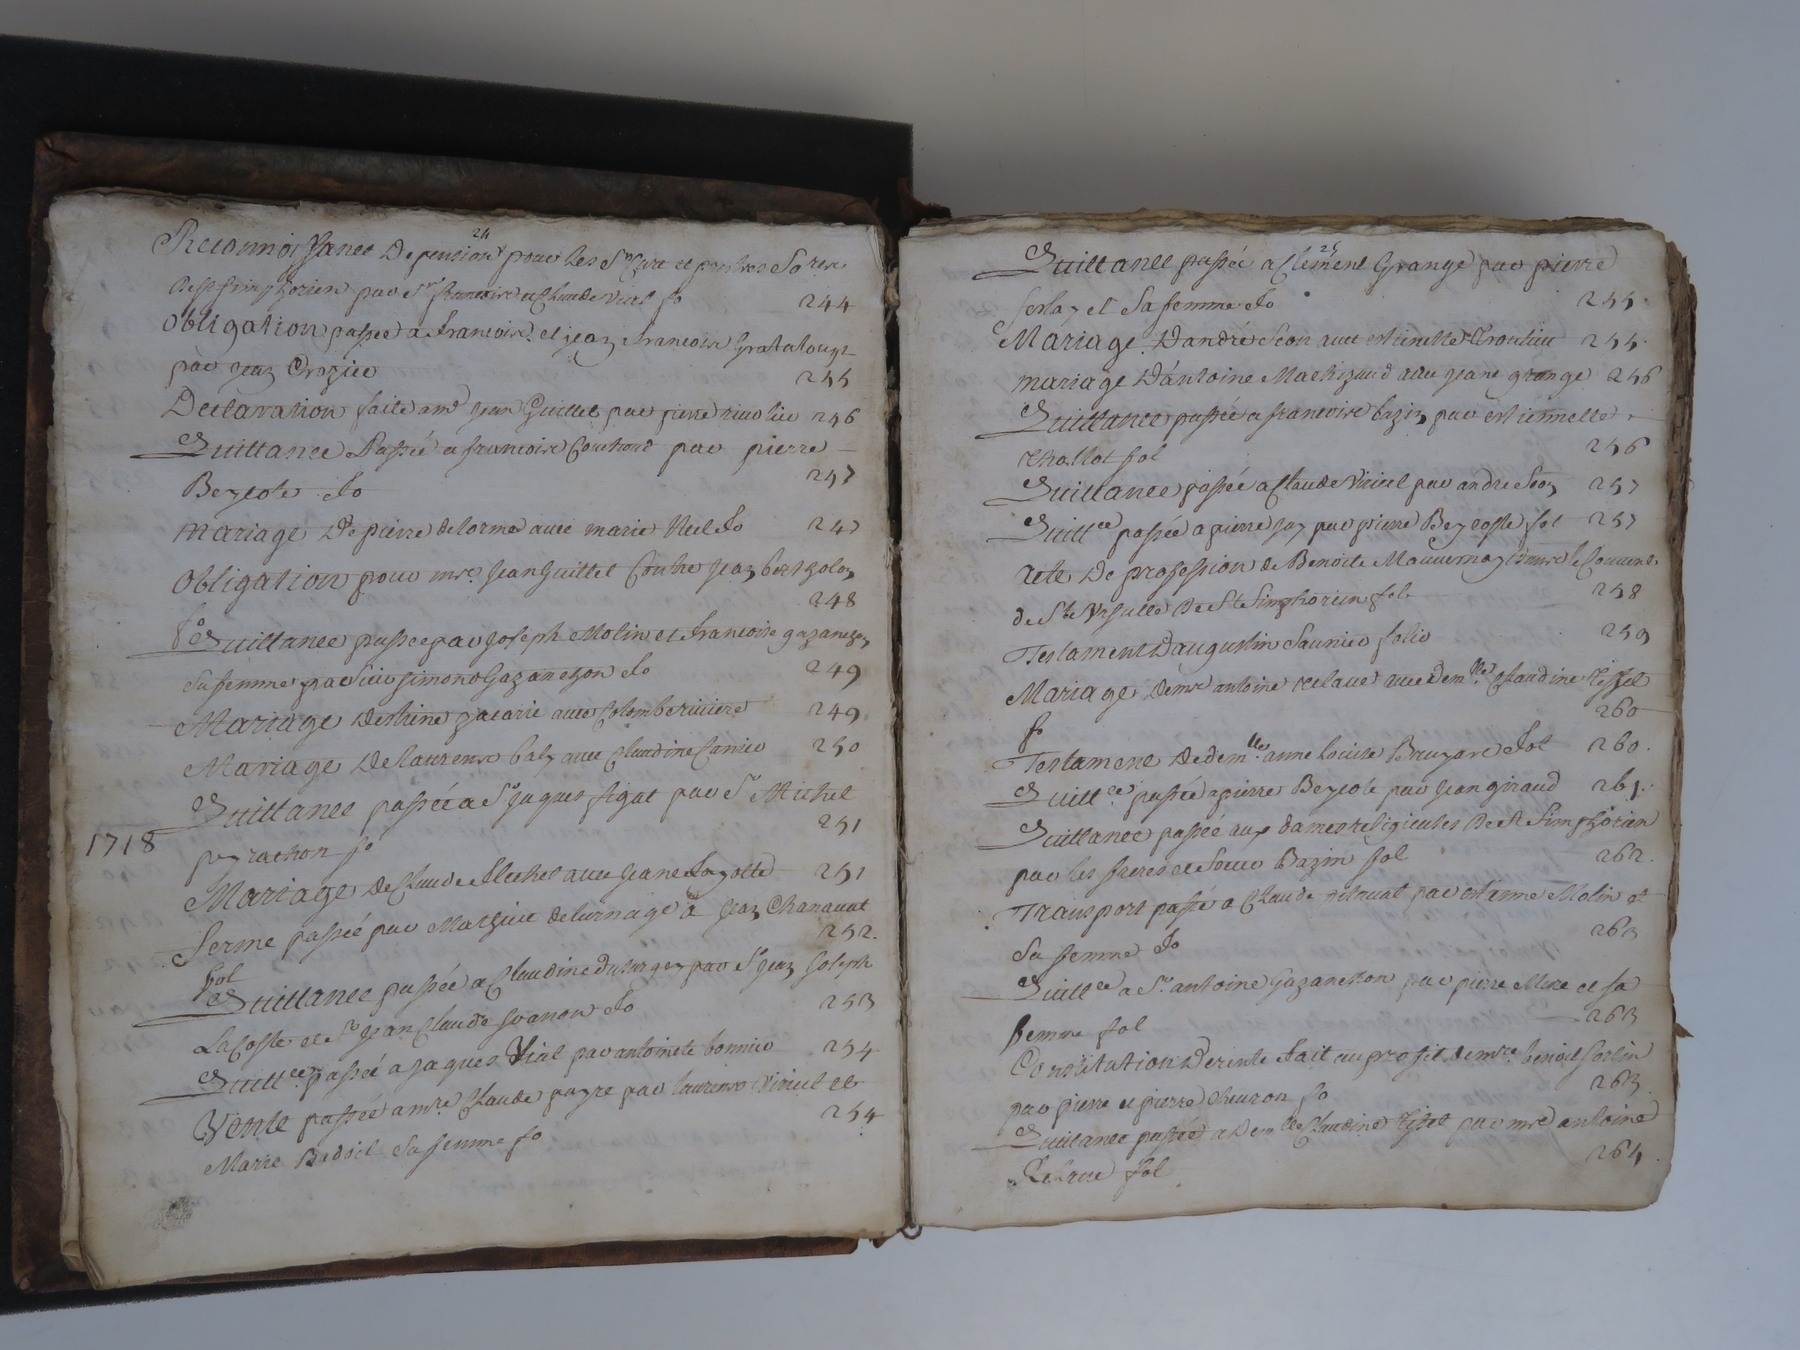 24
Reconnoissance De pension pour les Srs Curé et prestres Soc
De St Simphorien par Sr francoise et Claude Vial fo 244
Obligation passée a francoise et jean francoise Grataloup
par jean Crozier 245
Declaration faite a mr jean Guillet par pierre rivolier 246
Quittance Passée a francoise Couchoud par pierre
Beycote fo 247
Mariage De pierre delorme avec marie Neel fo 247
Obligation pour mre Jean Guillet Contre Jean bertholon
fo 248
Quittance passée par Joseph Molin et francoise gazanchon
sa femme par simond Gazanchon fo 249
Mariage Destiene zacarie avec Colombe riviere 249
Mariage De laurens baly avec Claudine Carrier 250
Quittance passée a Sr Jaques figat par Sr Michel
1718
peyrachon fo 251
Mariage De Claude Blechet avec Jeane fayolle 251
ferme passée par Mathieu delurnage a Jean Chanavat
fol 252.
Quittance passée a Claudine dusurgey par Sr Jean Joseph
La Coste et Sr Jean Claude fo 253
Quittce passée a Jaques Vial par antoinete bonnier 254
Vente passée a mre Claude payre par laurens Viricel et
Marie Badoil sa femme fo 254
25
Quittance passée a Clément Grange par pierre
ferlay et Sa femme fo 255
Mariage D'andré Seon avec estienette 255
mariage D'antoine Machizaud avec Jeane grange 256
Quittance passée a francoise bazin par estiennette
Challot fol 256
Quittance passée a Claude Viricel par andre Seon 257
Quittce passée a pierre Jay par pierre Beycoste fol 257
Acte De profession de Benoite Mauvernay dans le Couvent
de Ste Ursulle De St Simphorien fol 258
Testament D'augustin Saunier folio 259
Mariage De mre antoine Relave avec demlle Claudine
fo 260
Testament De demlle anne louise Bruyare fol 260.
Quittce passée a pierre Beycote par Jean giraud 261.
Quittance passée aux dames religieuses De St Simphorien
par les freres et Soeur Bazin fol 262.
Transport passé a Claude par estienne Molin et
Sa femme fo 263
Quittce a Sr antoine Gazanchon par pierre et sa
femme fol 263
Constitution De rente fait au profit de mre benoit
par pierre et pierre Cheuron fo 263
Quittance passée a Demlle Claudine par mre antoine
Relave fol 264.